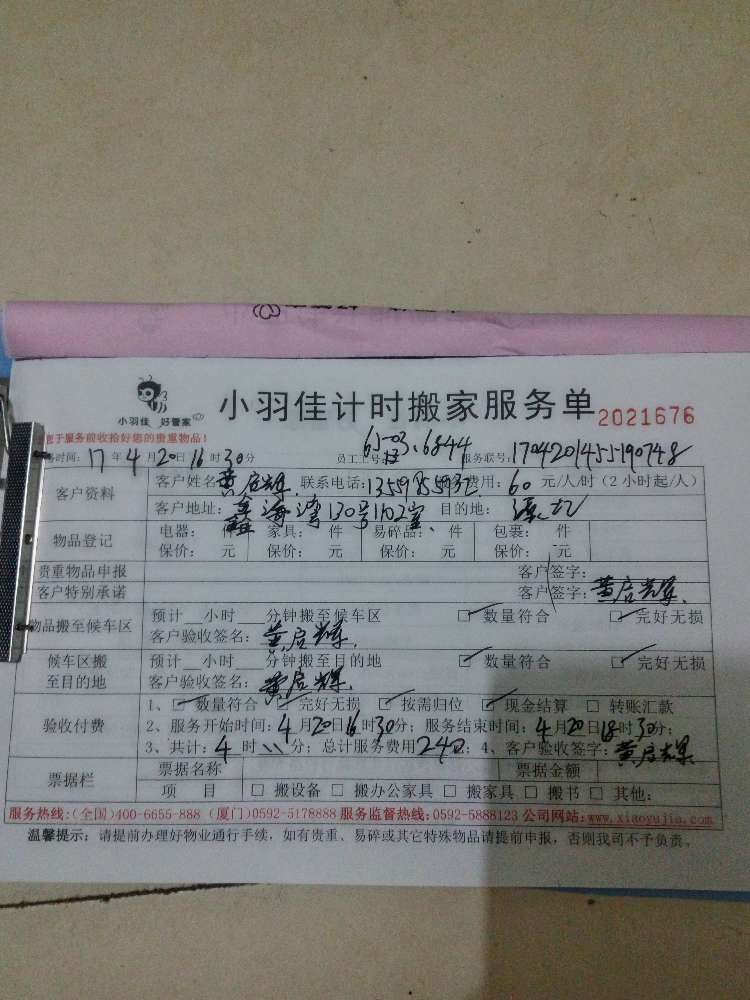 小羽佳 好管家
小羽佳计时搬家服务单 2021676
于服务前收拾好您的贵重物品!
时间: 17年4月20日16时30分 员工工号: 6503.6844 服务联号: 1704201455190748
客户资料 客户姓名 黄启辉 联系电话: 费用: 60 元/人/时(2小时起/人)
客户地址: 鑫海湾130号1102室 目的地:
物品登记 电器: 件 家具: 件 易碎品: 件 包裹: 件
保价: 元 保价: 元 保价: 元 保价: 元
贵重物品申报 客户签字:
客户特别承诺 客户签字: 黄启辉
物品搬至候车区 预计__小时___分钟搬至候车区 ☑ 数量符合 ☑ 完好无损
客户验收签名: 黄启辉
候车区搬至目的地 预计__小时___分钟搬至目的地 ☑ 数量符合 ☑ 完好无损
客户验收签名: 黄启辉
验收付费 1、☑ 数量符合 ☑ 完好无损 ☑ 按需归位 ☑ 现金结算 □ 转账汇款
2、服务开始时间: 4月20日16时30分; 服务结束时间: 4月20日18时30分;
3、共计: 4时 分; 总计服务费用240; 4、客户验收签字: 黄启辉
票据栏 票据名称 票据金额
项 目 □ 搬设备 □ 搬办公家具 □ 搬家具 □ 搬书 □ 其他:
服务热线:(全国)400-6655-888 (厦门)0592-5178888 服务监督热线:0592-5888123 公司网站:www.xiaoyujia.com
温馨提示: 请提前办理好物业通行手续, 如有贵重、易碎或其它特殊物品请提前申报, 否则我司不予负责。